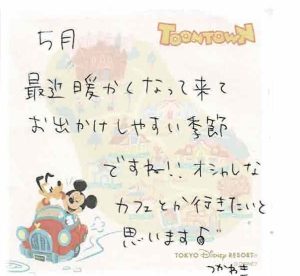 5月
TOONTOWN
最近暖かくなって来て
お出かけしやすい季節
ですね!! オシャレな
カフェとか行きたいと
思います♪
TOKYO DISNEY RESORT
つかわき